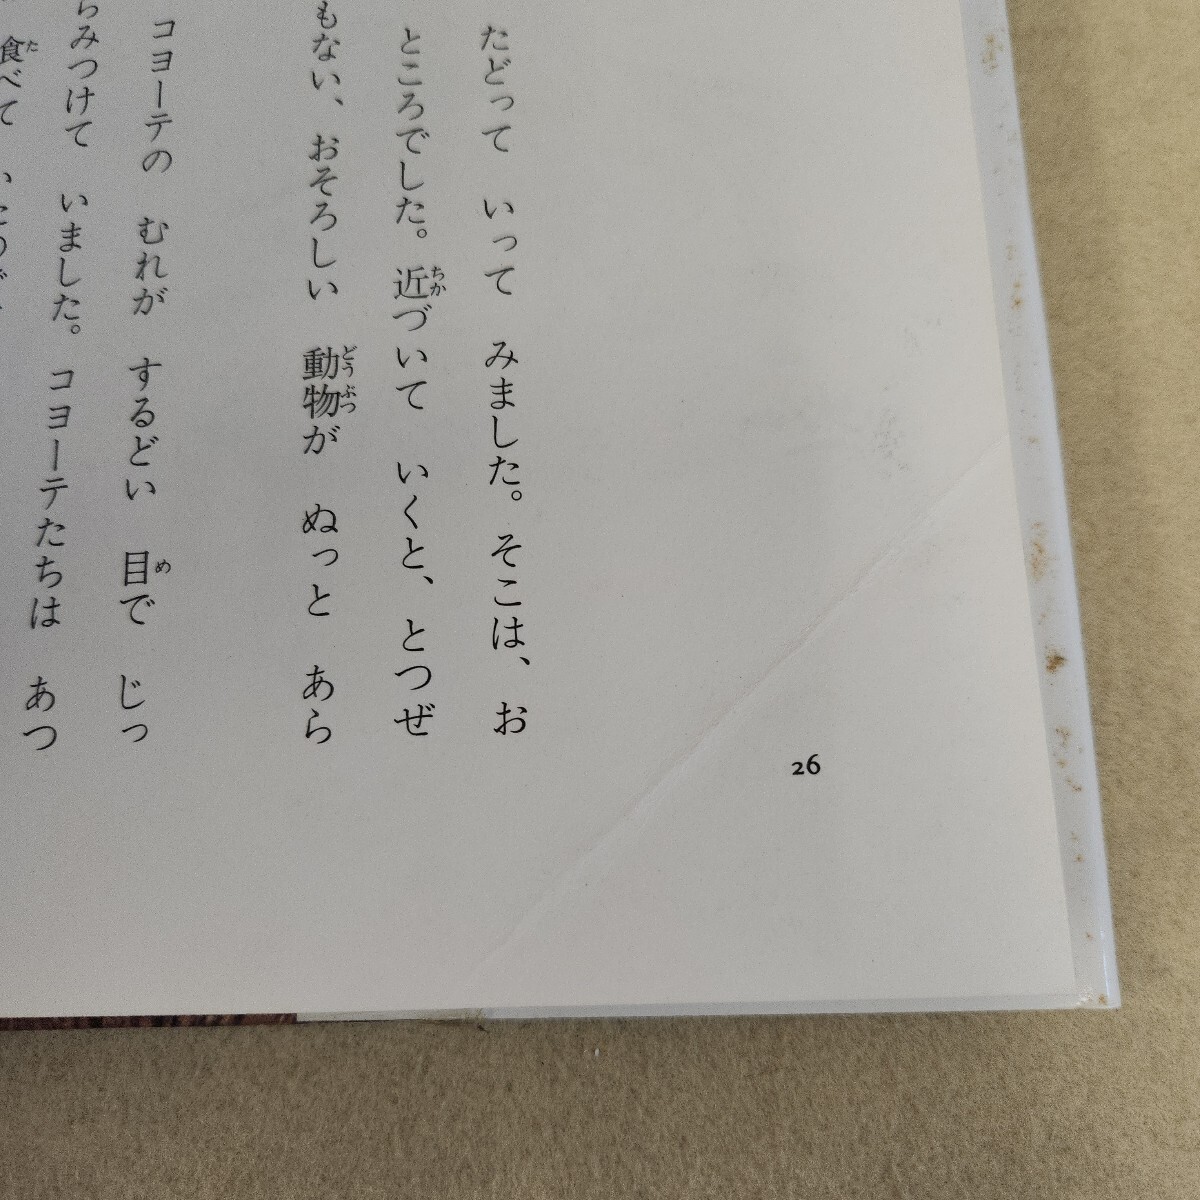 たどって いって みました。そこは、お
ところでした。近づいて いくと、とつぜ
もない、おそろしい 動物が ぬっと あら
コヨーテの むれが するどい 目で じっ
らみつけて いました。コヨーテたちは あつ
食べて
26